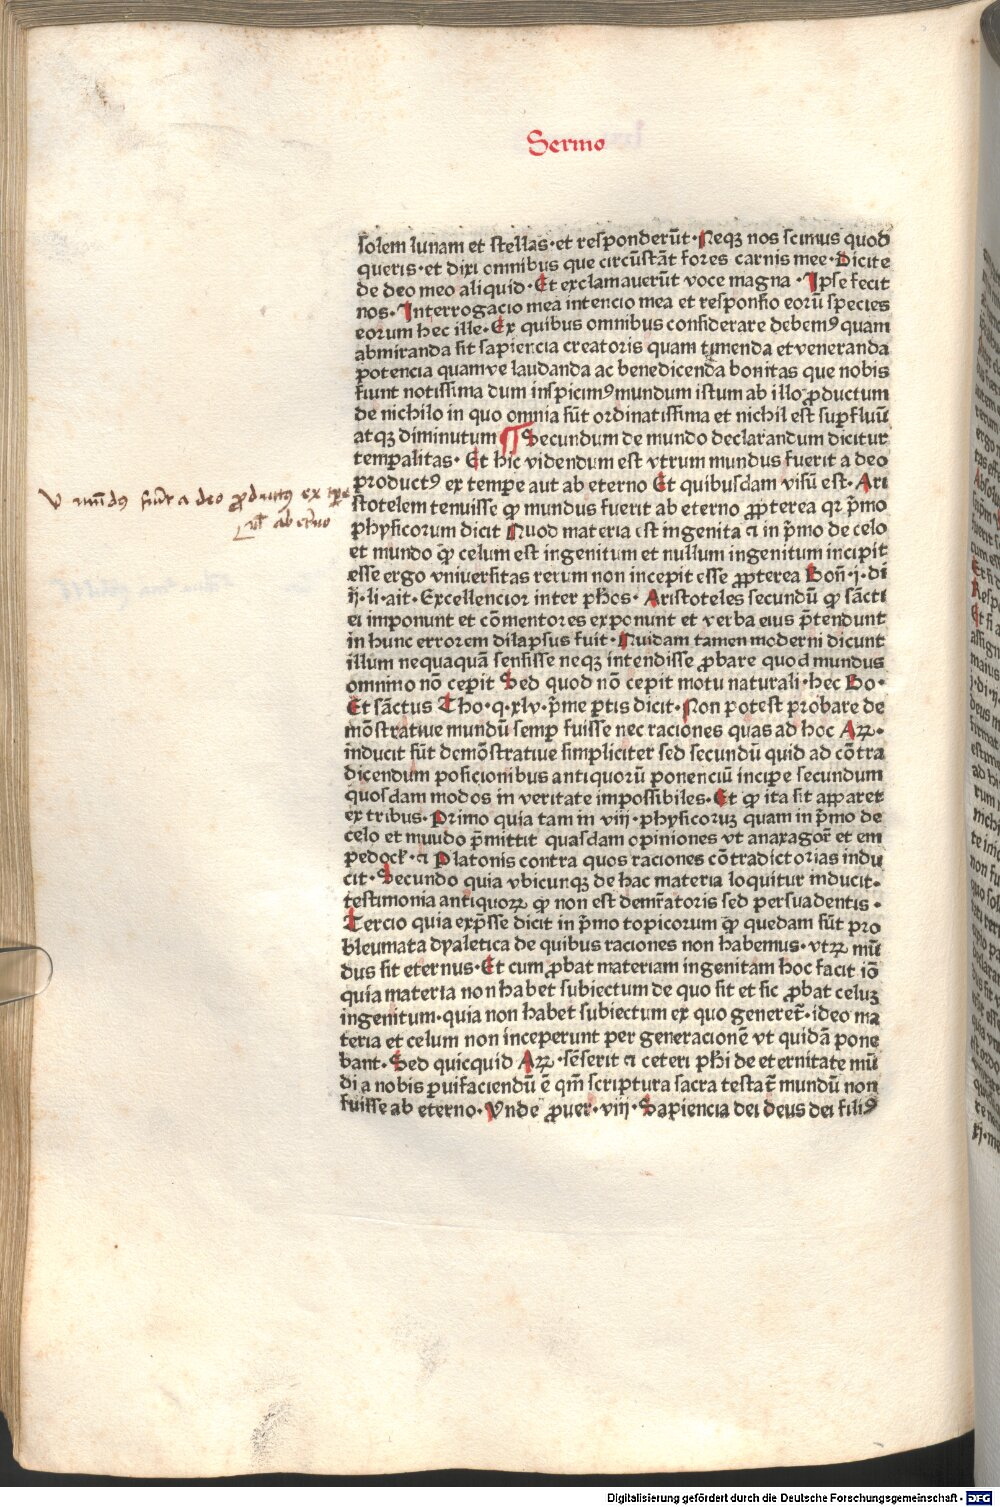 Sermo
solem lunam et stellas·et responderūt·Neqꝫ nos scimus quod
queris·et dixi omnibus que circūstāt fores carnis mee·Dicite
de deo meo aliquid·Et exclamauerūt voce magna·Ipse fecit
nos·Interrogacio mea intencio mea et responsio eorū species
eorum hec ille·Ex quibus omnibus considerare debemꝰ quam
abmiranda sit sapiencia creatoris quam timenda et veneranda
potencia quamve laudanda ac benedicenda bonitas que nobis
fiunt notissima dum inspicimꝰ mundum istum ab illo ꝓductum
de nichilo in quo omnia sūt ordinatissima et nichil est supfluū
atqꝫ diminutum ¶ Secundum de mundo declarandum dicitur
temꝑalitas·Et hic videndum est vtrum mundus fuerit a deo
productꝰ ex tempe aut ab eterno Et quibusdam visū est·Ari
V mūdꝰ fuit a deo ꝓductꝰ ex tpe
vl ab et̄no
stotelem tenuisse ꝙ mundus fuerit ab eterno ꝓpterea qꝛ p̄mo
phyſicorum dicit Quod materia est ingenita ⁊ in p̄mo de celo
et mundo ꝙ celum est ingenitum et nullum ingenitum incipit
esse ergo vniuersitas rerum non incepit esse ꝓpterea Bon̄·j·di
ij·li·ait·Excellencior inter ph̄os·Aristoteles secundū ꝙ sācti
ei imponunt et cōmentores exponunt et verba eius p̄tendunt
in hunc errorem dilapsus fuit·Quidam tamen moderni dicunt
illum nequaquā sensisse neqꝫ intendisse ꝓbare quod mundus
omnino nō cepit Sed quod nō cepit motu naturali·hec Bo·
Et sāctus Tho·q·xlv·p̄me ꝑtis dicit·Non potest probare de
mōstratiue mundū semꝑ fuisse nec raciones quas ad hoc Aꝝ·
inducit sūt demōstratiue simpliciter sed secundū quid ad cōtra
dicendum posicionibus antiquorū ponenciū incipe secundum
quosdam modos in veritate impossibiles·Et ꝙ ita sit apparet
ex tribus·Primo quia tam in viij·phyſicoruꝫ quam in p̄mo de
celo et muudo p̄mittit quasdam opiniones vt anaxagor̄ et em
pedocƚ·⁊ Platonis contra quos raciones cōtradictorias indu
cit·Secundo quia vbicunqꝫ de hac materia loquitur inducit·
testimonia antiquoꝝ ꝙ non est demr̄atoris sed persuadentis·
Tercio quia exp̄sse dicit in p̄mo topicorum ꝙ quedam sūt pro
bleumata dyaletica de quibus raciones non habemus·vtꝝ mū
dus sit eternus·Et cum ꝓbat materiam ingenitam hoc facit iō
quia materia non habet subiectum de quo sit et sic ꝓbat celuꝫ
ingenitum·quia non habet subiectum ex quo generet̄·ideo ma
teria et celum non inceperunt per generacionē vt quidā pone
bant·Sed quicquid Aꝝ·sēserit ⁊ ceteri phi de et ernitate mū
di a nobis ꝑuifaciendū ē qm̄ scriptura sacra testat̄ mundū non
fuisse ab eterno·Vnde ꝓuer·viij·Sapiencia dei deus dei filiꝰ
Digitalisierung gefördert durch die Deutsche Forschungsgemeinschaft - DFG